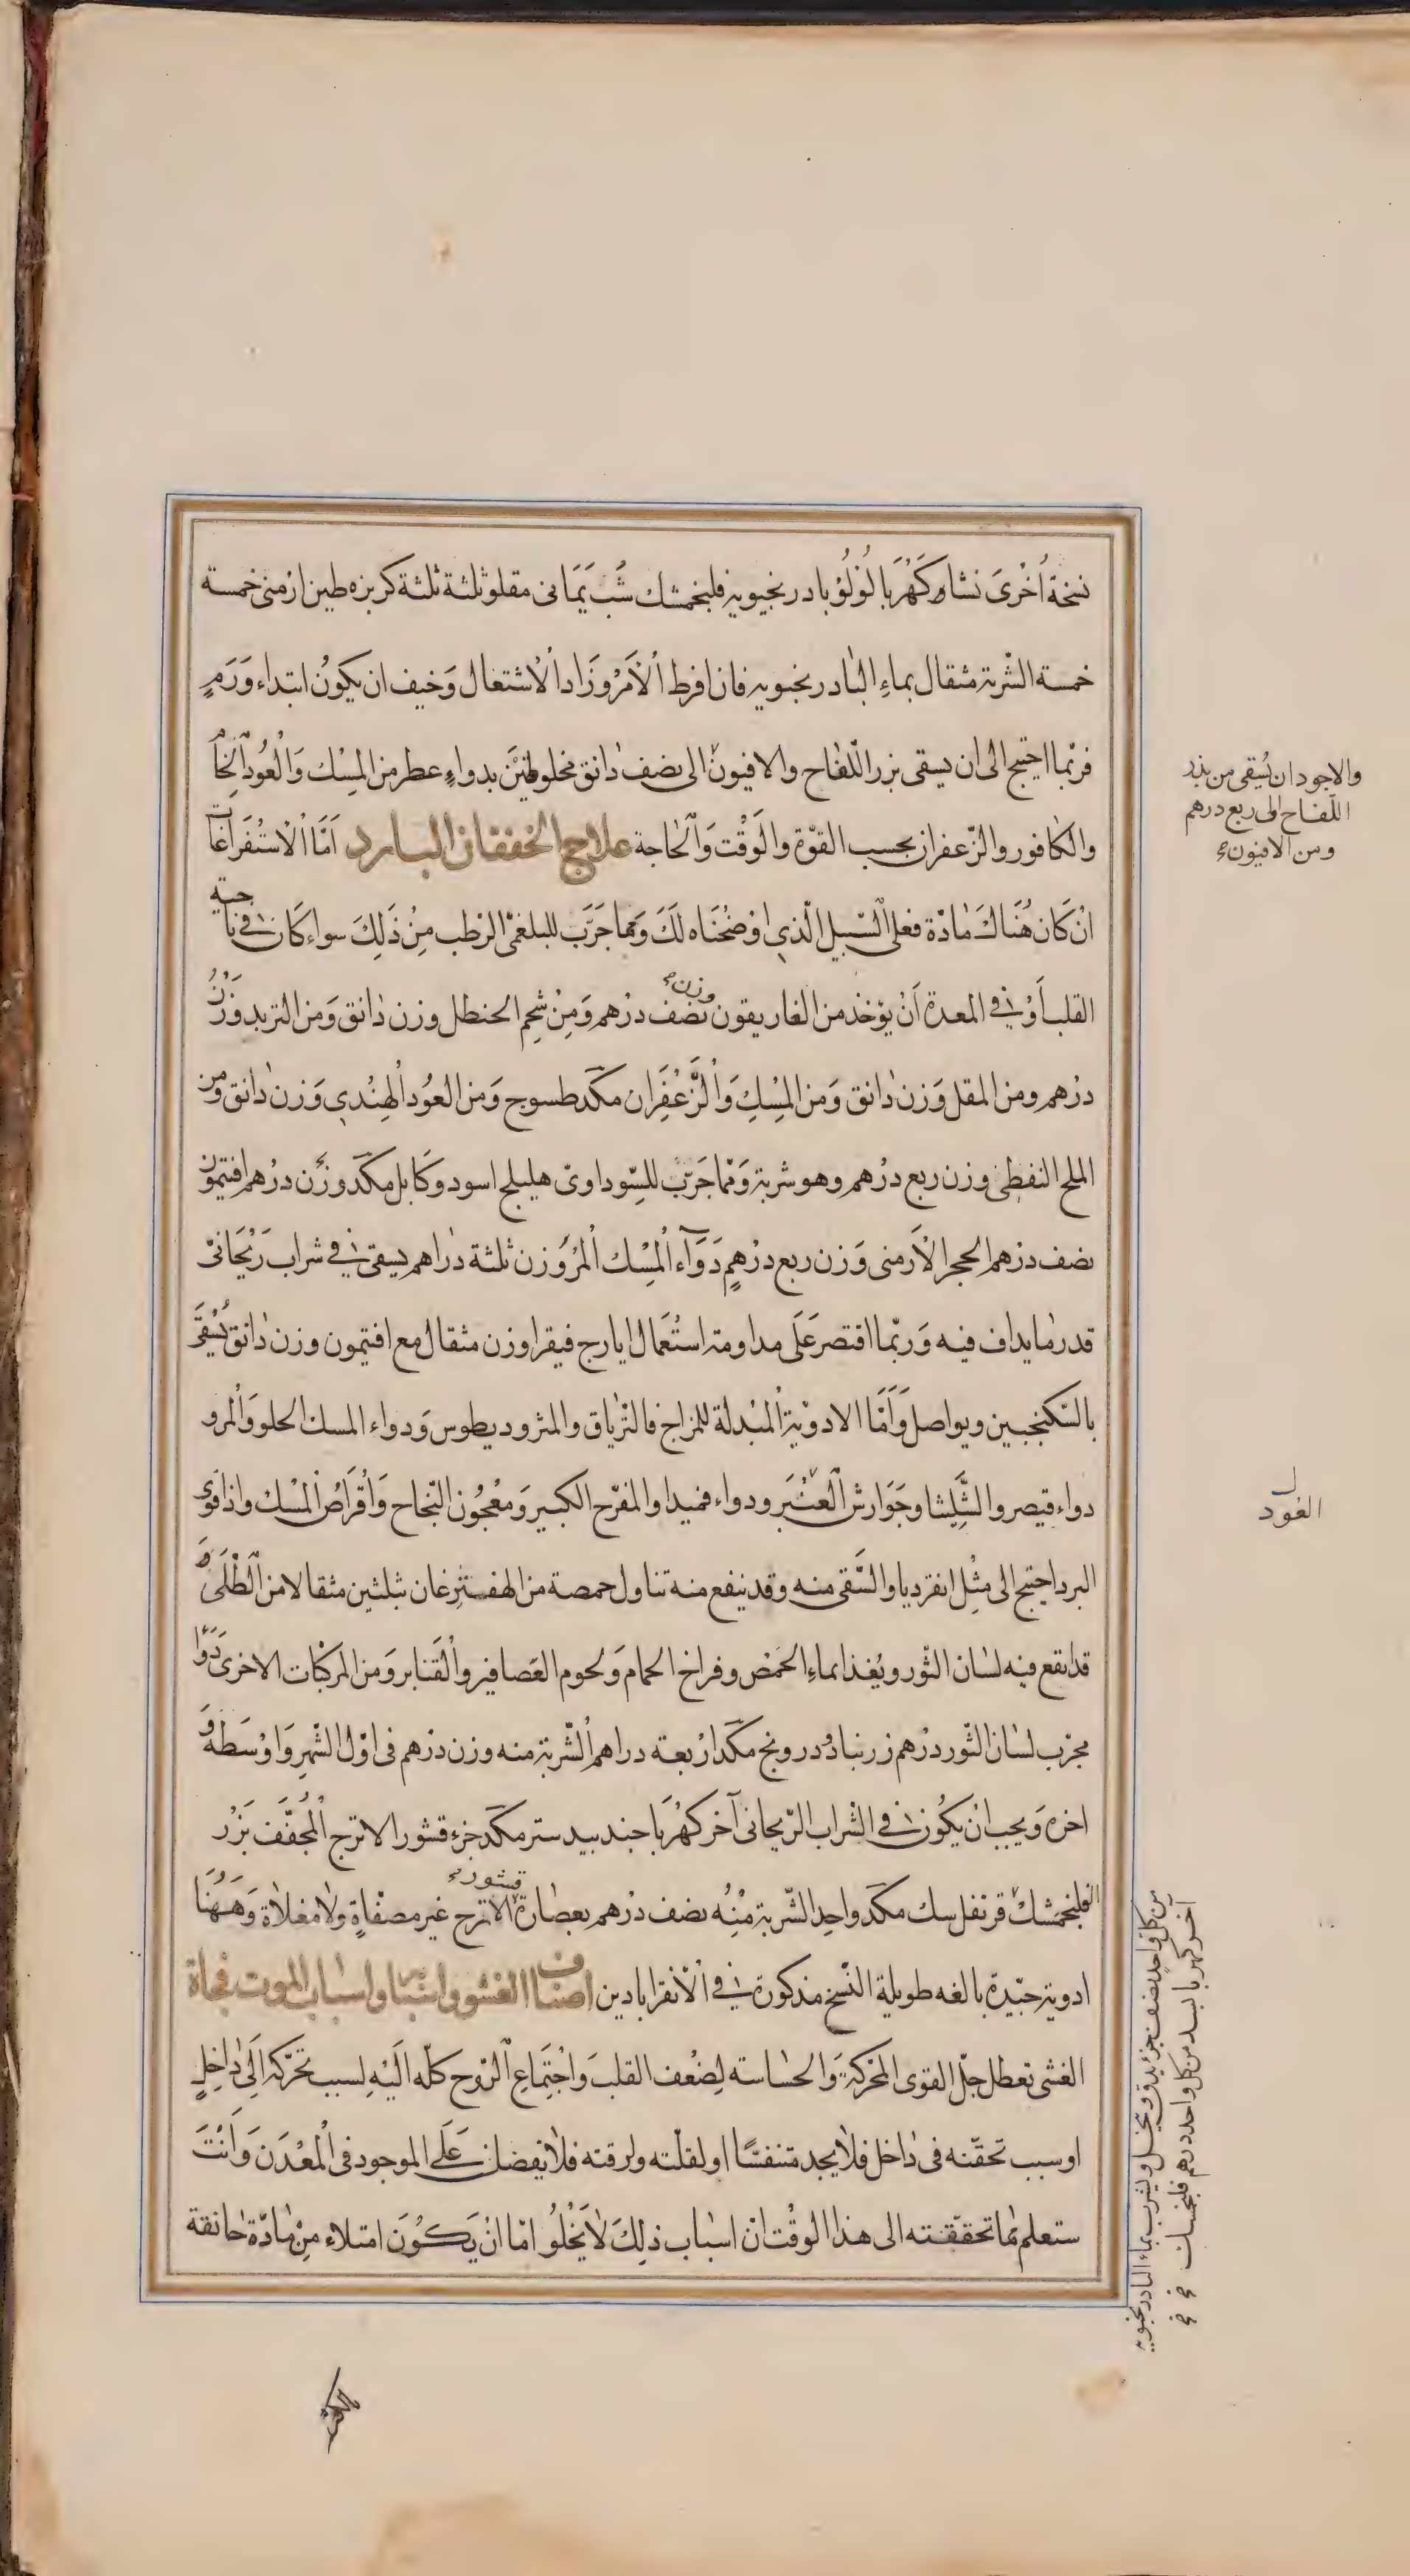 نسخة اُخْرىَ نشا وكَهْرَبا لُؤلُؤ بادرنجبويه فلنجمشك شَبّ يَمَانى مقلو ثلثة ثلثة كزبره طين ارمنى خمسة
خمسة الشّربة مثقال بماءِ البادرنجبويه فان افرط الْاَمْرُ وَزَاد الْاشتعال وَخيف ان يكونُ ابتداء وَرَمٍ
فربّما احتيج الى ان يسقى بزر اللّفاح والافيون الى نصف دانق مخلوطَيْن بدواءٍ عطر من المِسْك وَالْعُود الْخَا
والكافور والزّعفران بحسب القوّة والوَقْت وَالْحاجة علاج الخفقان البارد اَمَّا الْاسْتفراغَات
انْ كَان هُنَاكَ مَادّة فعلى السّبيل الّذي اوْضحْنَاه لَكَ وَمما جَرّبَ للبلغمّى الرّطب مِنْ ذَلِكَ سواء كَان فى ناحية
القلب أَوْ فى المعدة اَنْ يوْخذ من الغاريقون وزن نصف درْهم وَمِنْ شحِم الحنظل وزن دانق وَمن التربد وَزْنُ
درْهم ومن المقل وَزن دانق وَمن المِسْكِ وَالزَّعْفَرَان مكَد طسوج وَمن العُود الْهِنْدي وَزن دانق وَمن
الملح النفطى وزن ربع درْهم وهو شربة وَممّا جَرّبَ للسّوداوىّ هليلج اسود وكَابلى مكَد وزن درْهم افتيمون
نصف درْهم الحجر الْاَرمنى وَزن ربع درْهمٍ دَوَآء الْمِسْك الْمُرّ وَزن ثلثة دراهم يسقى فى شراب رَيْحَانىّ
قدر ما يداف فيه وَربّما اقتصر عَلَى مداومة استعْمَال ايارج فيقرا وزن مثقال مع افتيمون وزن دانق يُسْقَى
بالسّكنجبين ويواصل وَاَمَّا الادوْية الْمُبْدلة للمزاج فالتّرياق والمثروديطوس وَدواء المسك الحلو وَالْمر و
دواء قيصر والشِّليشا وجَوَارش الْعنْبَر ودواء فميدا والمفرّح الكبير وَمعْجُون النّجاح وَاقْرَاصُ الْمسْك واذا قوى
البرد احتيج الى مثْل انقرديا والسَّقى منه وقد ينفع منه تناول حمصة من الهفتبزغان بثلثين مثقالا من الطِّلَى و
قد انقع فيه لسان الثّور ويُغذا بماءِ الحمّص وفراخ الحمام وَلحوم العَصافير والْقَنابر وَمن المركّبات الاخرىَ دَوَا
مجرّب لسَان الثّور درْهم زرنباد ودرونج مكَد ارْبعة دراهم الشّربة منه وزن درْهم فى اوّل الشّهرِ وَاوْسَطه وَ
اخره وَيجب انْ يكُون فى الشّراب الرّيحانى آخر كهْرَبا جندبيدستر مكَد جزء قشور الاترج الْمُجَفّفِ بَزْر
الفلنجمشكْ قرنفل سك مكَد واحدٍ الشّربة مِنْهُ نصف درْهم بعصارة قشور الاترج غير مصفّاةٍ ولا مغلاة وَههُنَا
ادوية جيّدة بالغه طويلة النّسخ مذكورة فى الْاَنقراباذين اصناف الغشى واسبابه واسباب الموت فجاة
الغشى تعطل جلّ القوى المحرّكة وَالحسّاسة لِضعْف القلبَ وَاجْتِمَاعِ الرّوح كلّه الَيْهِ لسبب تحرّكه اِلَى داخِلٍ
او سبب تحقنه فى داخل فلا يجد متنفسّا او لقلّته ولرقته فلا يفضل عَلَى الموجود فى الْمعْدَن وَاَنْتَ
ستعلم مّما تحقّقته الى هذا الوقْت انْ اسْبَاب ذلِكَ لاَ يَخْلُوُ امّا انْ يَكُوُنَ امتلاء مِنْ مادّة خانقة
والاجود ان يُسقى من بذر
اللّفاح الى ربع درهم
ومن الافيون
ل
الغود
اخر كهربا بسد من كل واحد درهم فلنجمسك
من كل واحد نصف جزء يدق وينخل ويشرب بماء البادرنجبويه